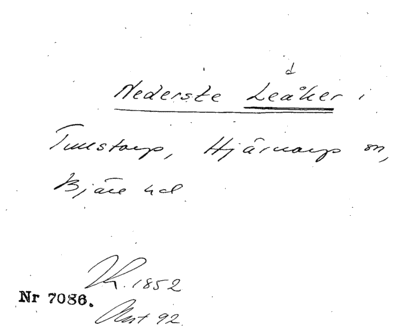 d
Nederste Leåker i
Tullstorp, Hjärnarp sn,
Bjäre hd
Nr 7086.
1852
92